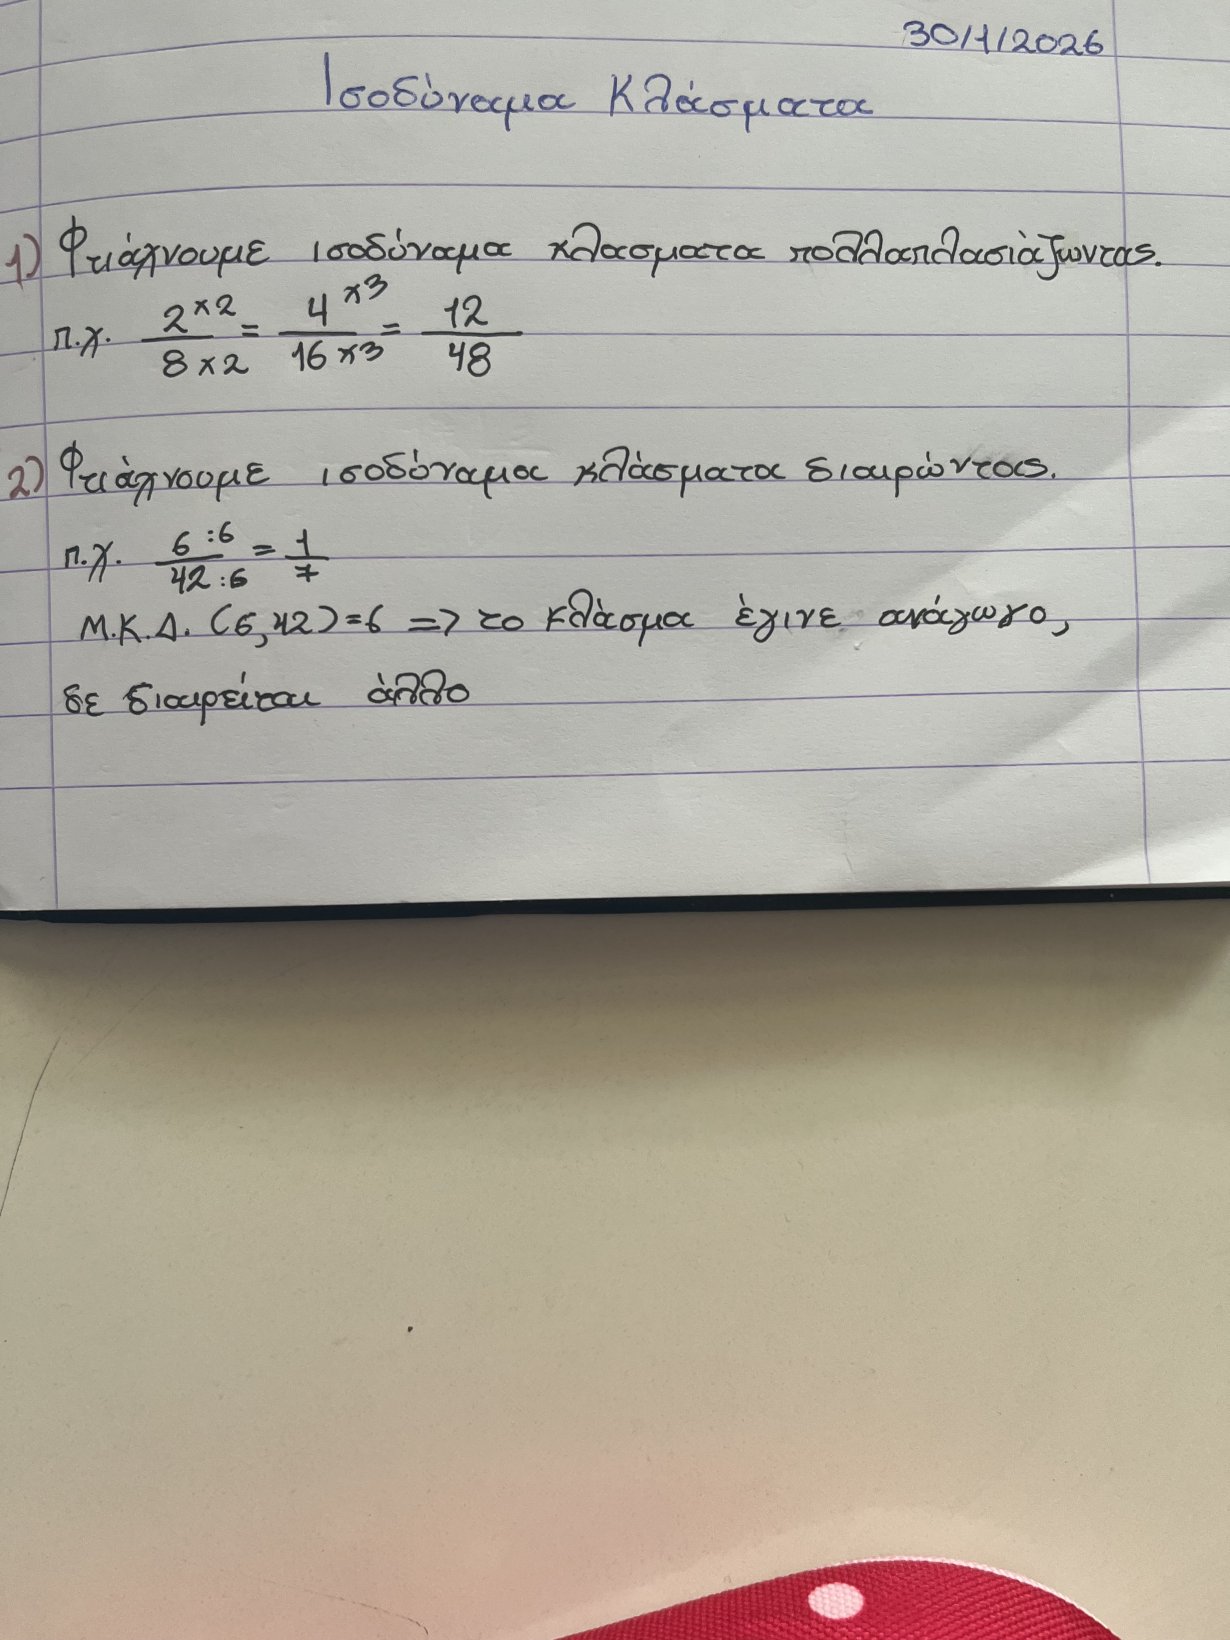 30/1/2026
Ισοδύναμα Κλάσματα
1) Φτιάχνουμε ισοδύναμα κλασματα πολλαπλασιάζωντας.
π.χ. 2×2/8×2 = 4×3/16×3 = 12/48
2) Φτιάχνουμε ισοδύναμα κλάσματα διαιρώντας.
π.χ. 6:6/42:6 = 1/7
Μ.Κ.Δ. (6,42)=6 => το κλάσμα έγινε ανάγωγο,
δε διαιρείται άλλο